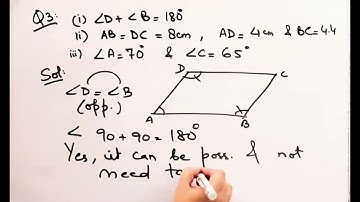 Q3: (i) ∠D + ∠B = 180°
ii) AB = DC = 8cm , AD = 4cm & BC = 4.4
iii) ∠A = 70° & ∠C = 65°
Sol:
D
C
∠D = ∠B
(opp.)
A
O
B
∠ 90 + 90 = 180°
Yes, it can be poss. & not
need to